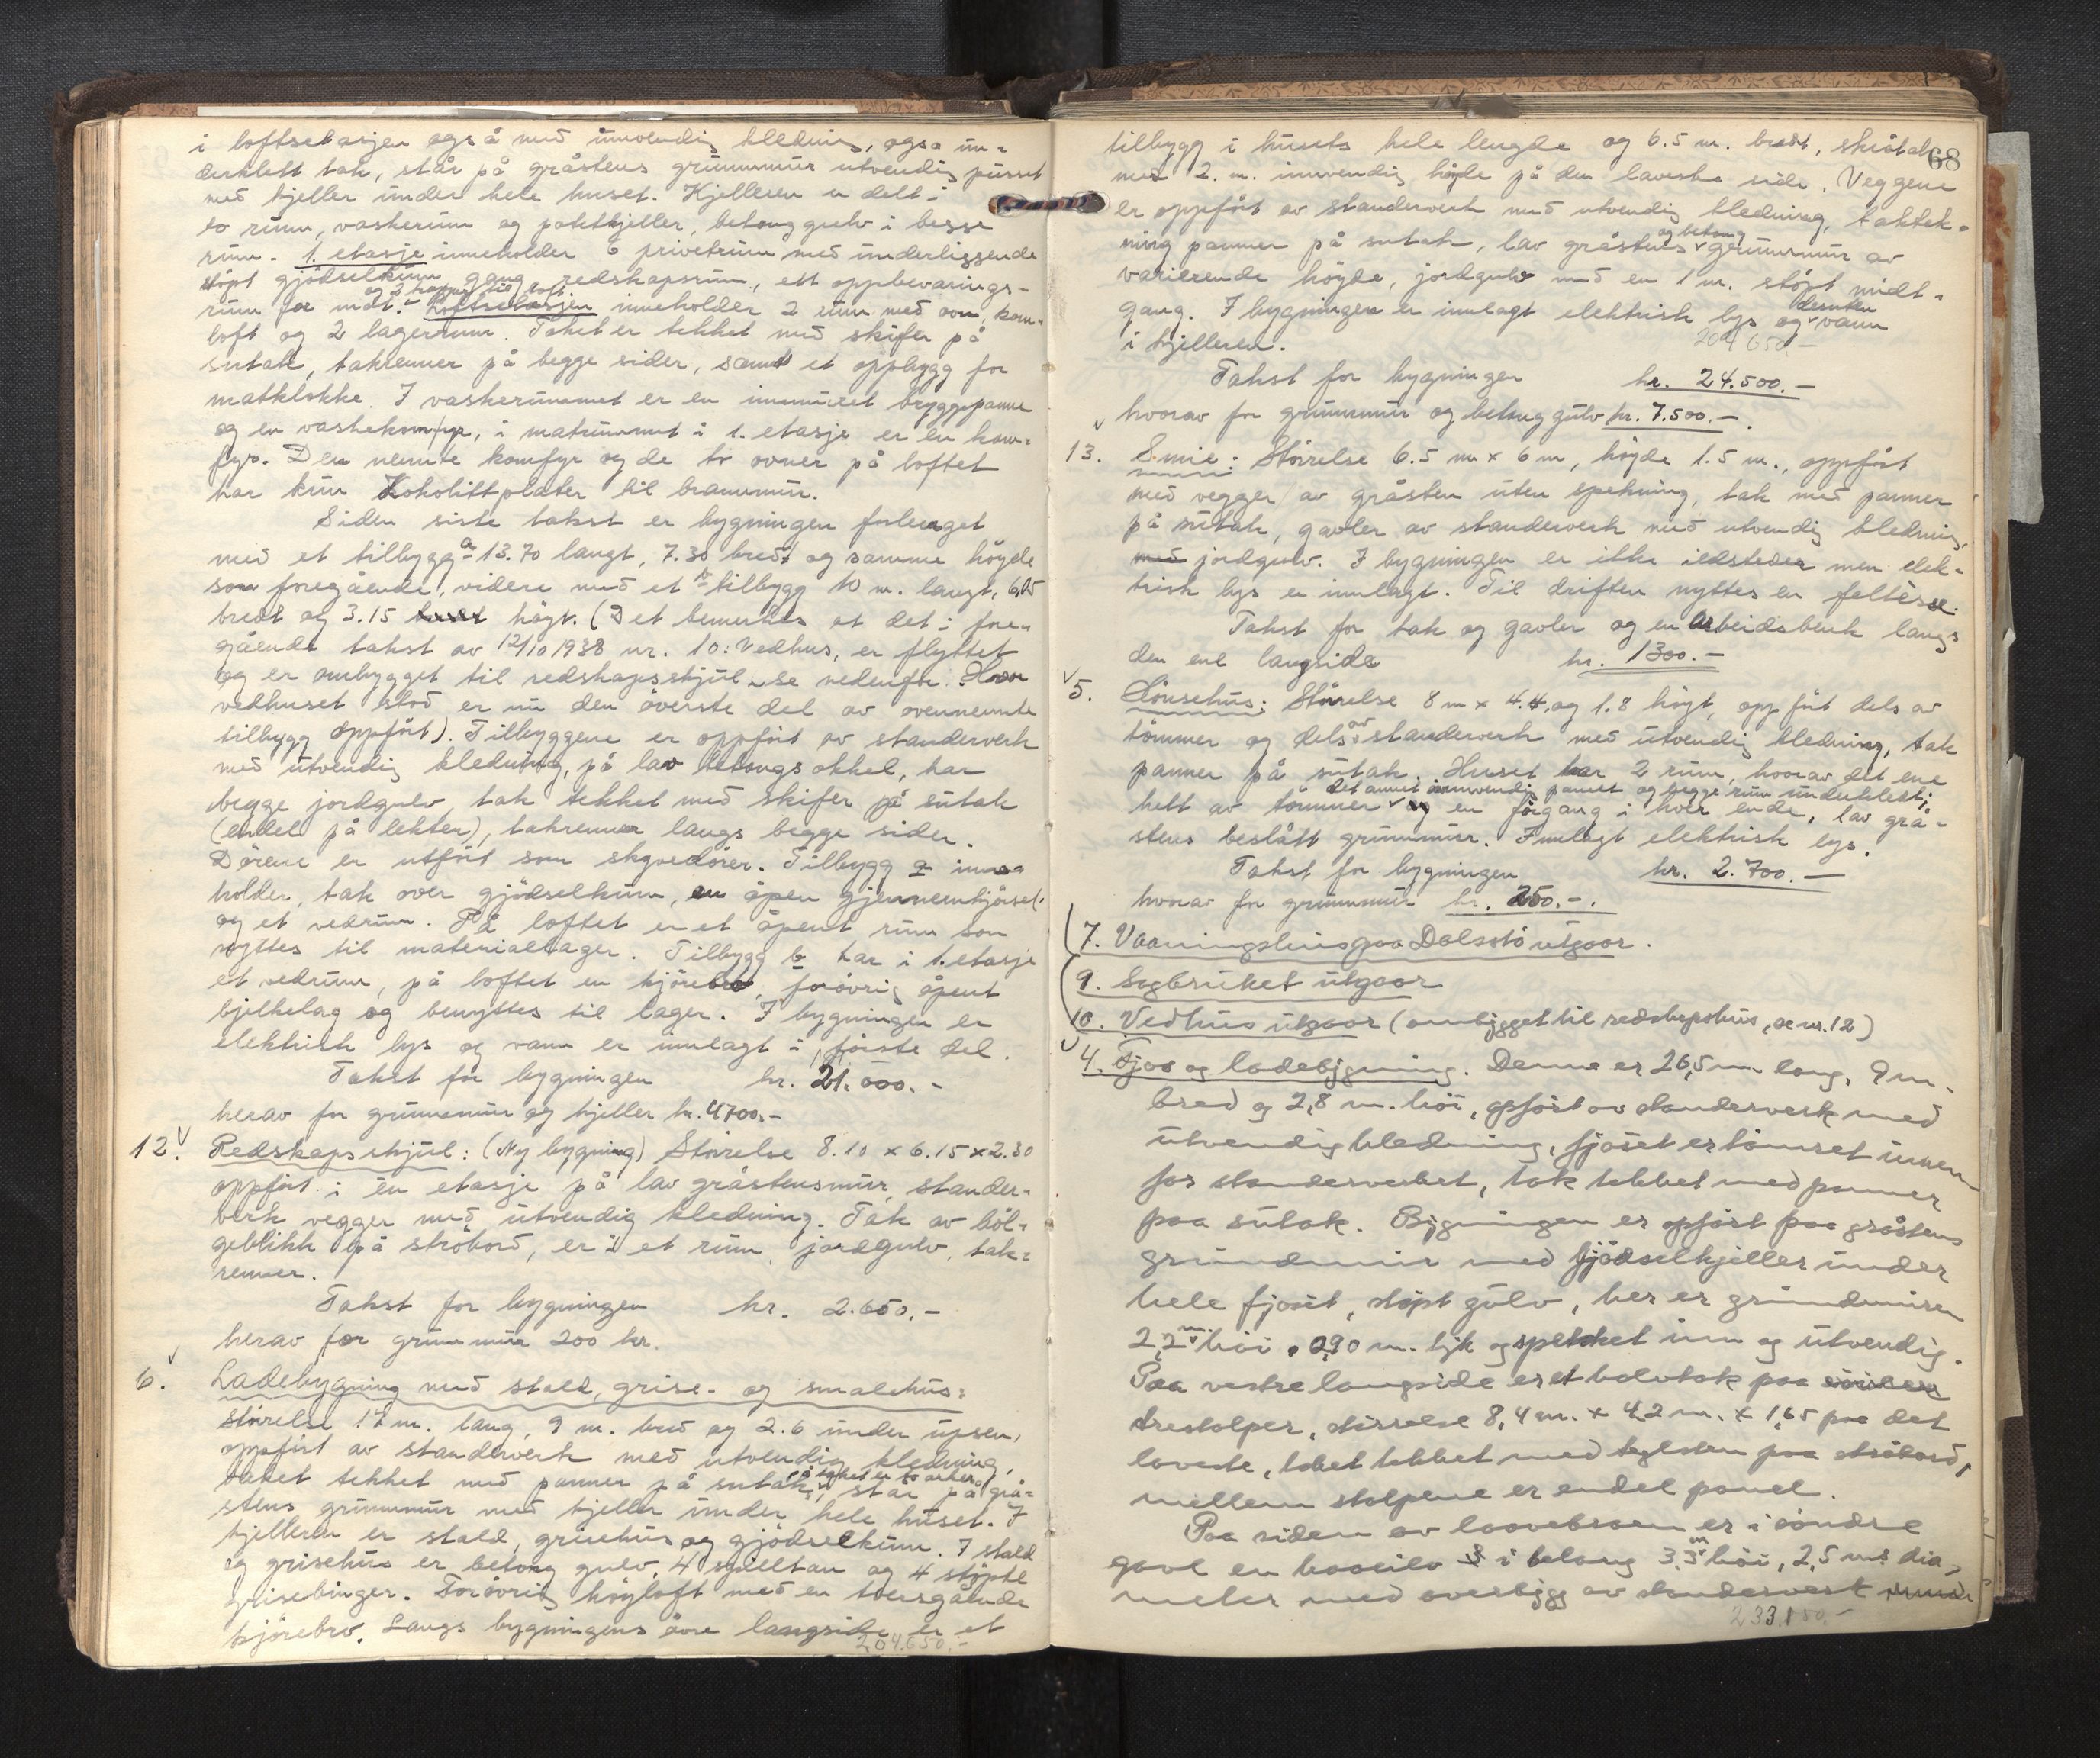 i loftsetasjen også med innvendig kledning, også un-
derklett tak, står på gråstens grunnmur utvendig pusset
med kjeller under hele huset. Kjelleren er delt i
to rum, vaskerum og potetkjeller, betonggulv i begge
rum. 1. etasje inneholder 3 privetrum med underliggende
støpt gjödselkum, gang, redskapsrum, ett oppbevarings-
rum for mat. og 2 trapper til loft. Loftsetasjen inneholder 2 rum med ovn, kom-
loft og 2 lagerrum. Taket er tekket med skifer på
sutak, takrenner på begge sider, samt et oppbygg for
matklokke. I vaskerummet er en innmuret bryggepanne
og en vaskekomfyr, i matrummet i 1. etasje er en kom-
fyr. Den nevnte komfyr og de to ovner på loftet
har kun Kokolittplater til brannmur.
Siden siste takst er bygningen forlenget
med et tilbygg a 13.70 langt, 7.30 bredt og samme höyde
som foregående, videre med et b tilbygg 10 m. langt, 6,05
bredt og 3.15 höyt. (Det bemerkes at det i fore-
gående takst av 12/10 1938 nr. 10: Vedhus, er flyttet
og er ombygget til redskapsskjul, se nedenfor. Hvor
vedhuset stod er nu den överste del av ovennevnte
tilbygg oppfört). Tilbyggene er oppfört av standerverk
med utvendig kledning, på lav betongsokkel, har
begge jordgulv, tak tekket med skifer på sutak
(endel på lekter), takrenner langs begge sider.
Dörene er utfört som skyvedörer. Tilbygg a inne-
holder, tak over gjödselkum, en åpen gjennemkjörsel
og et vedrum. På loftet er et åpent rum som
nyttes til materiallager. Tilbygg b har i 1. etasje
et vedrum, på loftet en kjörebro, forövrig åpent
bjelkelag og benyttes til lager. I bygningen er
elektrisk lys og vann er innlagt i förste del.
Takst for bygningen kr. 21.000.-
herav for grunnmur og kjeller kr. 4700.-
12. Redskapsskjul: (Ny bygning) Störrelse 8.10 x 6.15 x 2.30
oppfört i én etasje på lav gråstensmur, stander-
verk vegger med utvendig kledning. Tak av böl-
geblikk på strobord, er i et rum, jordgulv, tak-
renner.
Takst for bygningen kr. 2.650.-
herav for grunnmur 200 kr.
6. Ladebygning med stald, grise- og smalehus:
Störrelse 17 m. lang, 9 m. bred og 2.6 under upsen,
oppfört av standerverk med utvendig kledning,
taket tekket med panner på sutak, står på grå-
stens grunnmur med kjeller under hele huset. I
kjelleren er stald, grisehus og gjödselkum. I stald
og grisehus er betong gulv, 4 spilltau og 4 stöpte
grisebinger. Forövrig höyloft med en tversgående
kjörebro. Langs bygningens övre langside er et
204.650.-
68
tilbygg i husets hele lengde og 6.5 m. bredt, skråtak
med 2. m. innvendig höyde på den laveste side. Veggene
er oppfört av standerverk med utvendig kledning, taktek-
ning panner på sutak, lav gråstens og betong grunnmur av
varierende höyde, jordgulv med en 1 m. stöpt midt-
gang. I bygningen er innlagt elektrisk lys og desuten vann
i kjelleren. 204 650.-
Takst for bygningen kr. 24.500.-
hvorav for grunnmur og betong gulv kr. 7.500.-.
13. Smie: Störrelse 6.5 m x 6 m, höyde 1.5 m., oppfört
med vegger av gråsten uten spekning, tak med panner
på sutak, gavler av standerverk med utvendig kledning,
med jordgulv. I bygningen er ikke ildsteder men elek-
trisk lys er innlagt. Til driften nyttes en feltesse.
Takst for tak og gavler og en arbeidsbenk langs
den ene langside kr. 1300.-
5. Hönsehus: Störrelse 8 m x 4.4, og 1.8 höyt, oppfört dels av
tömmer og dels av standerverk med utvendig kledning, tak
panner på sutak. Huset har 2 rum, hvorav det ene
helt av tömmer det annet innvendig panelt og begge rum underklett; og en forgang i hver ende, lav grå-
stens beslått grunnmur. Innlagt elektrisk lys.
Takst for bygningen kr. 2.700.-
hvorav for grunnmur kr. 250.-.
7. Vaaningshus paa Dalsstö utgaar.
9. Sagbruket utgaar
10. Vedhus utgaar (ombygget til redskapshus, se nr. 12)
4. Fjos og ladebygning. Denne er 26,5 m. lang, 9 m.
bred og 2,8 m. höi, opfört av standerverk med
utvendig kledning, fjöset er tömret innen
for standerverket, tak tekket med panner
paa sutak. Bygningen er opfört paa gråstens
grundmur med gjödselkjeller under
hele fjöset, stöpt gulv, her er grundmuren
2,2 m. höi, 0,90 m. tyk og spekket inn og utvendig.
Paa vestre langside er et halvtak paa
trestolper, störrelse 8,4 m. x 4,2 m. x 1,65 paa det
laveste, taket tekket med teglsten paa ströbord,
mellem stolpene er endel panel.
Paa siden av laavebroen er i söndre
gavl en haasilo i betong 3.3 m höi, 2,5 m. dia-
meter med overbygg av standerverk
233.150.-